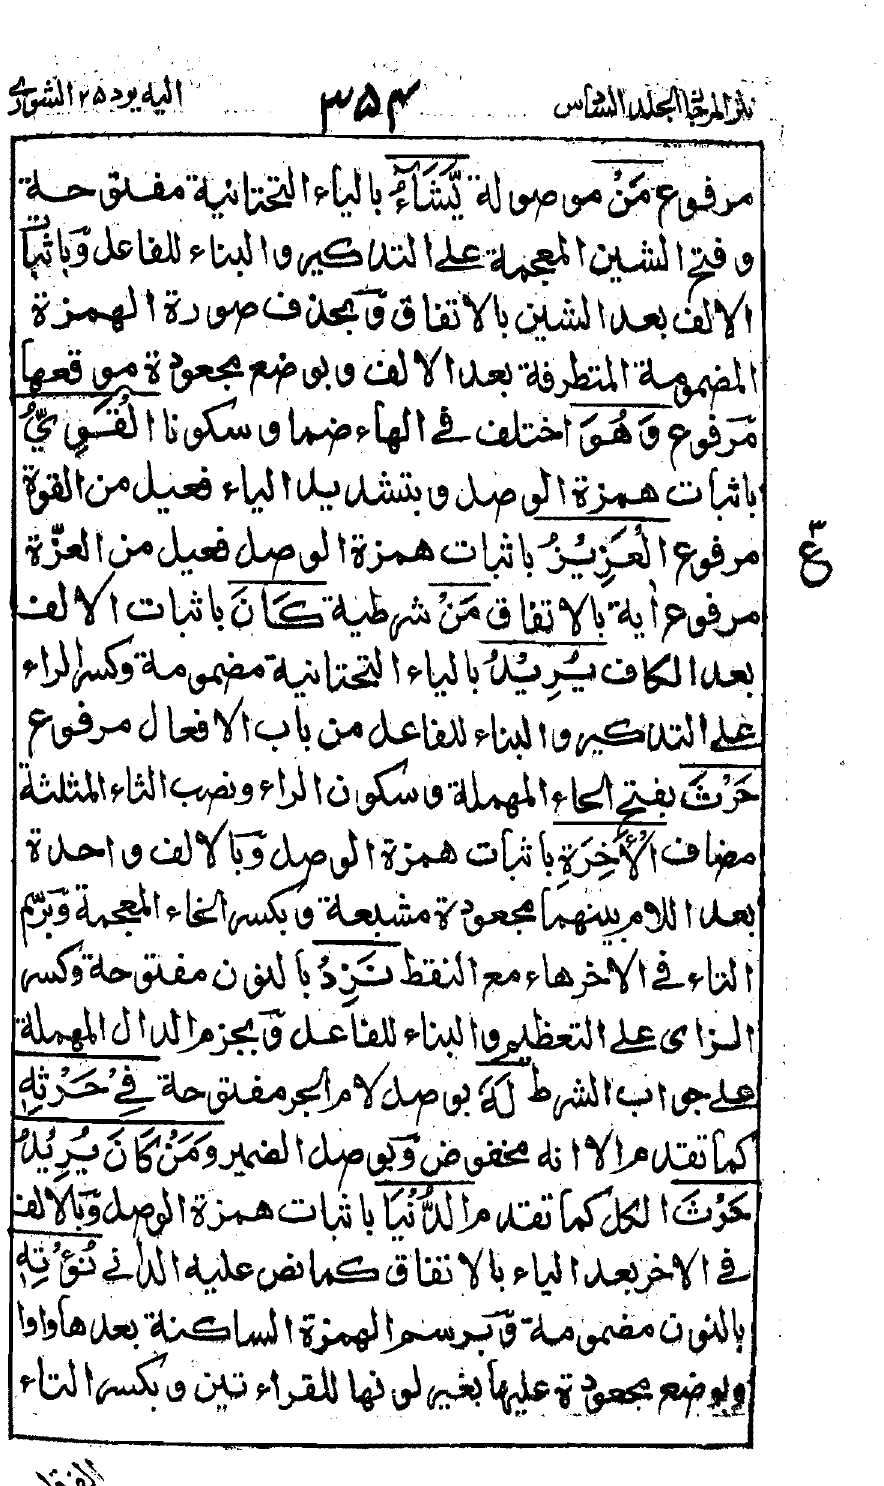 نثر المرجان المجلد السادس ٣٥٤ اليه يرد ٢٥ الشورى
مرفوع مَنْ موصولة يَّشَآءُ بالياء التحتانية مفتوحة
وفتح الشين المعجمة على التذكير والبناء للفاعل وباثبات
الالف بعد الشين بالاتفاق وبحذف صورة الهمزة
المضمومة المتطرفة بعد الالف وبوضع مجعودة موقعها
مرفوع وَهُوَ اختلف في الهاء ضما وسكونا الْقَوِيُّ
باثبات همزة الوصل وبتشديد الياء فعيل من القوة
مرفوع الْعَزِيْزُ باثبات همزة الوصل فعيل من العزّة
مرفوع اٰية بالاتفاق مَنْ شرطية كَانَ باثبات الالف
بعد الكاف يُرِيْدُ بالياء التحتانية مضمومة وكسر الراء
على التذكير والبناء للفاعل من باب الافعال مرفوع
حَرْثَ بفتح الحاء المهملة وسكون الراء ونصب الثاء المثلثة
مضاف الْاٰخِرَةِ باثبات همزة الوصل وبالالف واحدة
بعد اللام بينهما مجعودة مشبعة وبكسر الخاء المعجمة وبرسم
التاء في الاخر هاء مع النقط نَزِدْ بالنون مفتوحة وكسر
الزاى على التعظيم والبناء للفاعل وبجزم الدال المهملة
على جواب الشرط لَهٗ بوصل لام الجر مفتوحة فِيْ حَرْثِهٖ
كما تقدم الا انه مخفوض وبوصل الضمير وَمَنْ كَانَ يُرِيْدُ
حَرْثَ الكل كما تقدم الدُّنْيَا باثبات همزة الوصل وبالالف
في الاخر بعد الياء بالاتفاق كما نص عليه الداني نُؤْتِهٖ
بالنون مضمومة وبرسم الهمزة الساكنة بعدها واوا
وبوضع مجعودة عليها بغير لونها للقراءتين وبكسر التاء